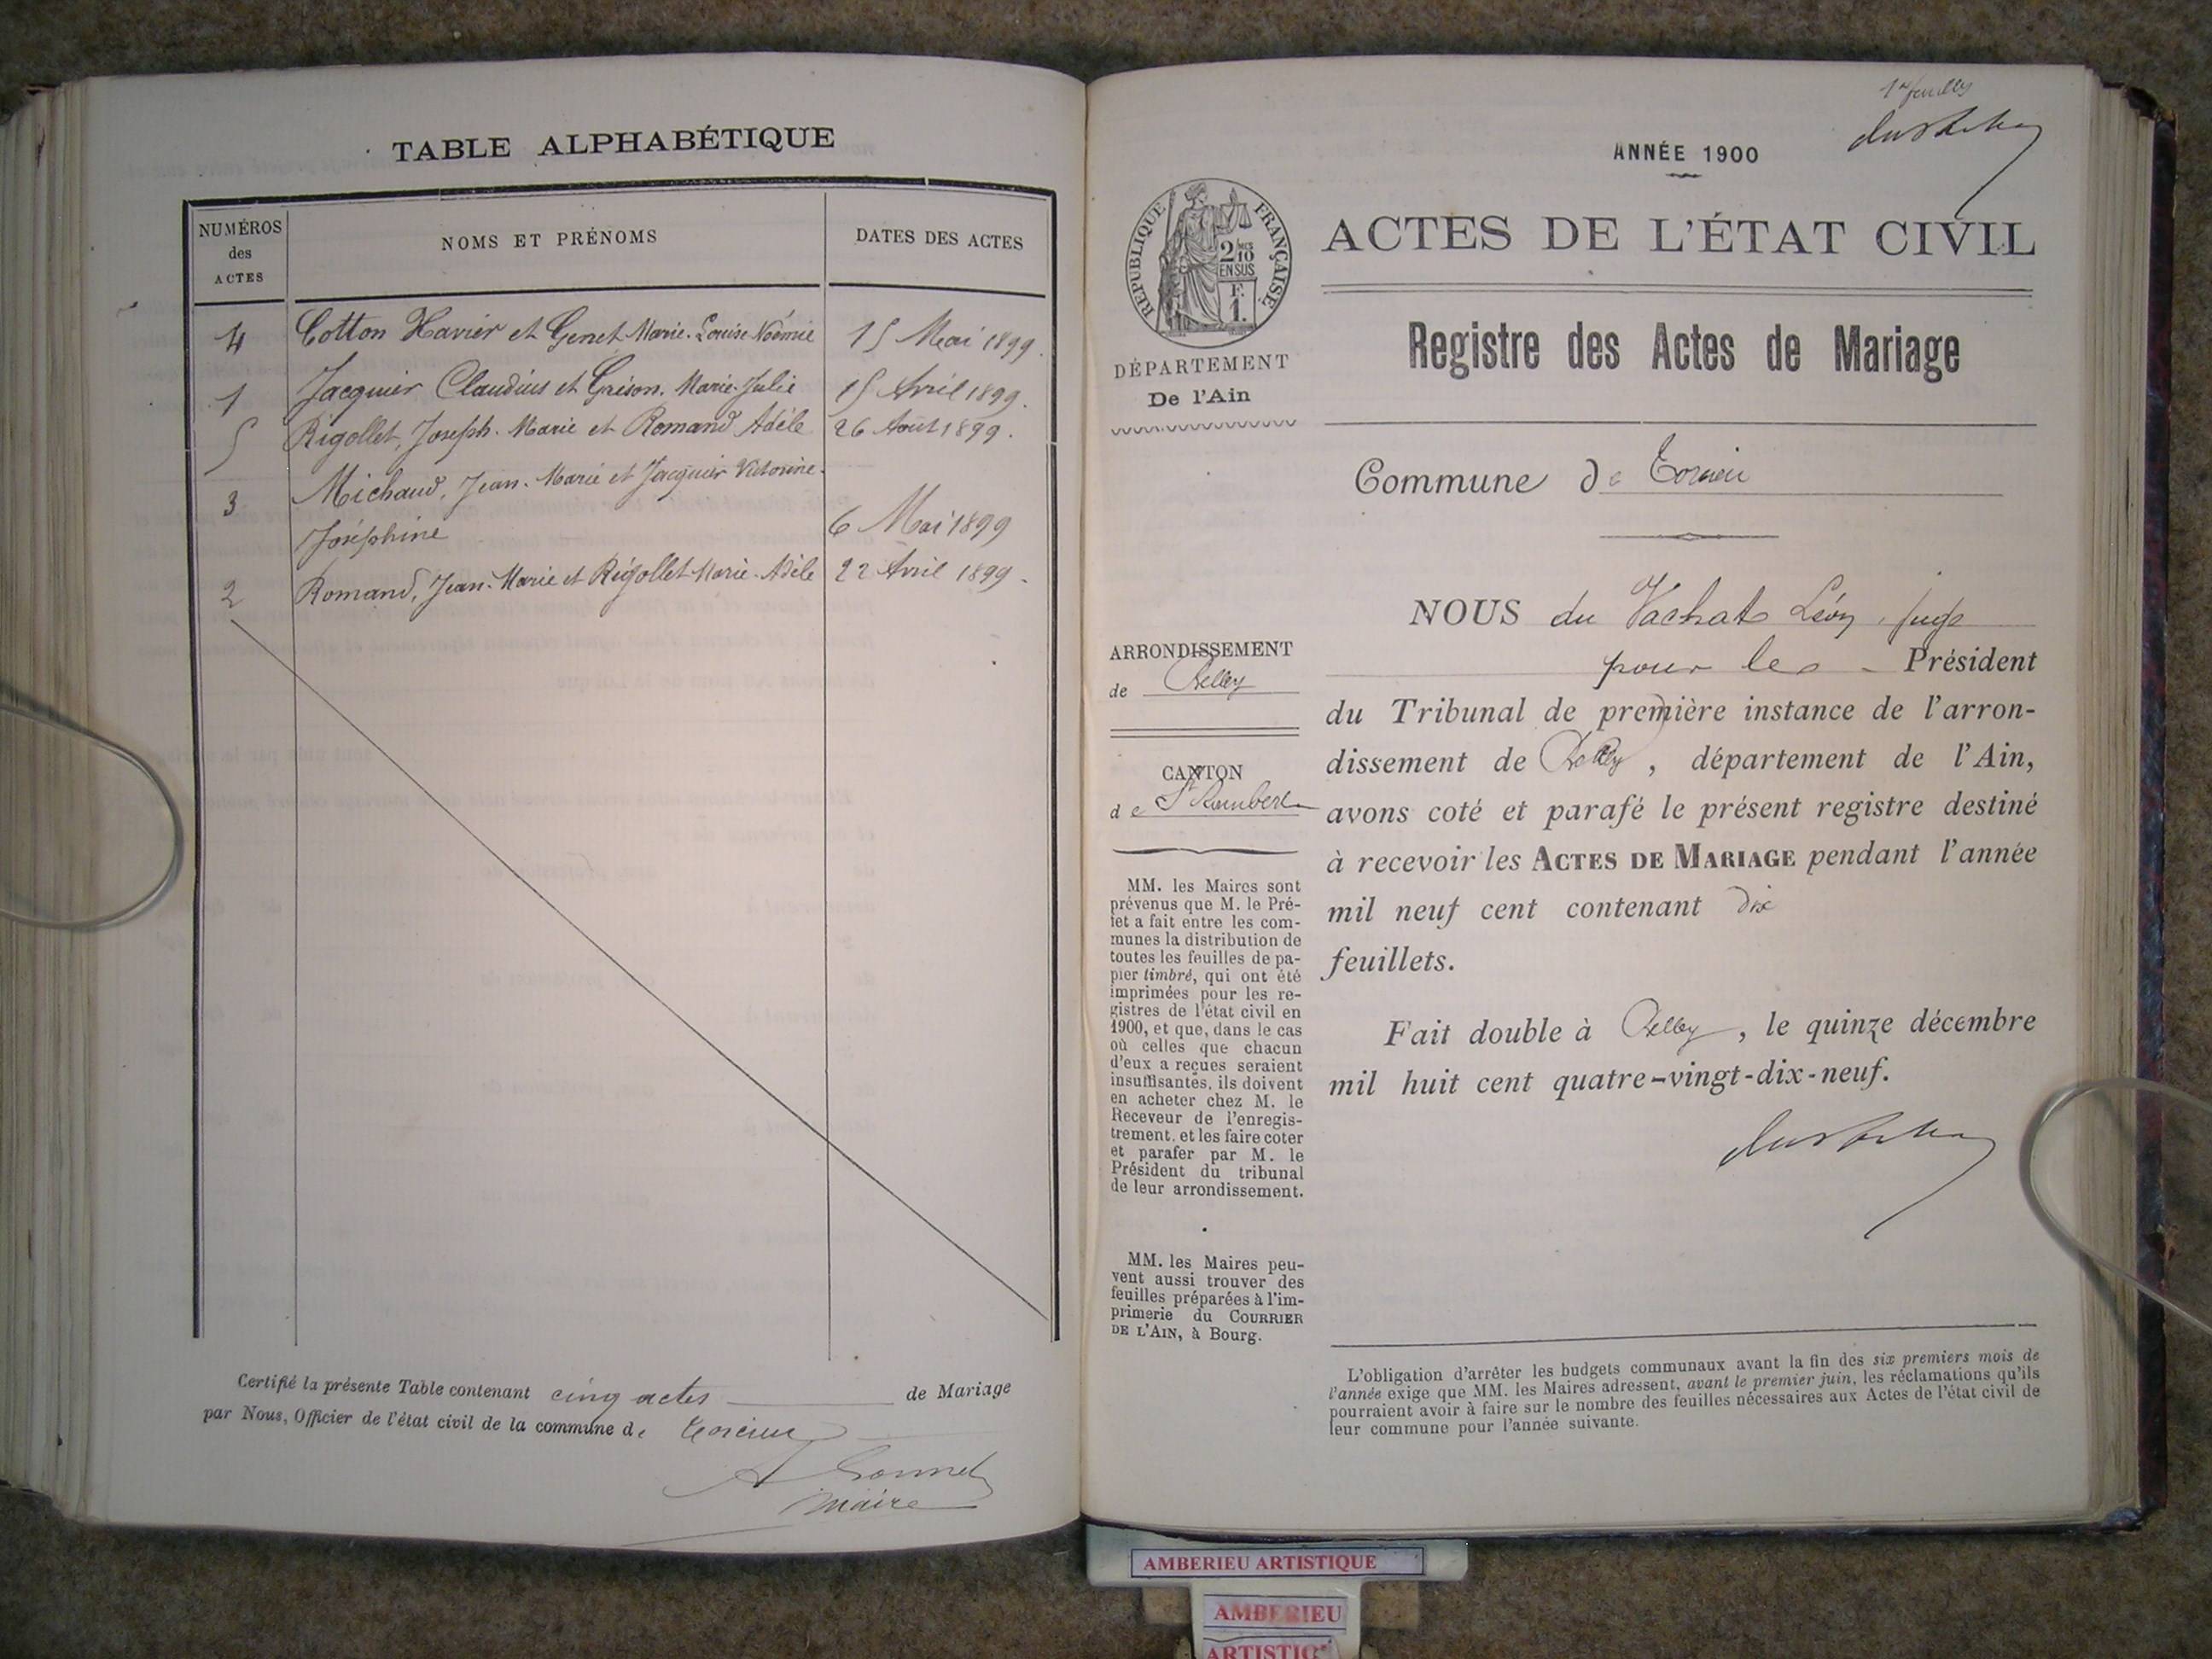 TABLE ALPHABÉTIQUE
NUMÉROS des ACTES
NOMS ET PRÉNOMS
DATES DES ACTES
4 Cotton Xavier et Genet Marie-Louise Noémie 15 Mai 1899.
1 Jacquier Claudius et Grison, Marie-Julie 15 Avril 1899.
5 Rigollet, Joseph-Marie et Romand Adèle 26 Août 1899.
3 Michaud, Jean-Marie et Jacquier Victorine-
Joséphine 6 Mai 1899
2 Romand, Jean-Marie et Rigollet Marie-Adèle 22 Avril 1899.
Certifié la présente Table contenant cinq actes de Mariage
par Nous, Officier de l'état civil de la commune de Torcieu
Maire
ANNÉE 1900
RÉPUBLIQUE FRANÇAISE
2/10 EN SUS
F. 1.
ACTES DE L'ÉTAT CIVIL
Registre des Actes de Mariage
DÉPARTEMENT
De l'Ain
Commune de Torcieu
ARRONDISSEMENT
de Belley
CANTON
de St Rambert
MM. les Maires sont
prévenus que M. le Pré-
fet a fait entre les com-
munes la distribution de
toutes les feuilles de pa-
pier timbré, qui ont été
imprimées pour les re-
gistres de l'état civil en
1900, et que, dans le cas
où celles que chacun
d'eux a reçues seraient
insuffisantes, ils doivent
en acheter chez M. le
Receveur de l'enregis-
trement, et les faire coter
et parafer par M. le
Président du tribunal
de leur arrondissement.
MM. les Maires peu-
vent aussi trouver des
feuilles préparées à l'im-
primerie du COURRIER
DE L'AIN, à Bourg.
NOUS du Vachat Léon, juge
pour le Président
du Tribunal de première instance de l'arron-
dissement de Belley, département de l'Ain,
avons coté et parafé le présent registre destiné
à recevoir les ACTES DE MARIAGE pendant l'année
mil neuf cent contenant dix
feuillets.
Fait double à Belley, le quinze décembre
mil huit cent quatre-vingt-dix-neuf.
L'obligation d'arrêter les budgets communaux avant la fin des six premiers mois de
l'année exige que MM. les Maires adressent, avant le premier juin, les réclamations qu'ils
pourraient avoir à faire sur le nombre des feuilles nécessaires aux Actes de l'état civil de
leur commune pour l'année suivante.
AMBERIEU ARTISTIQUE
AMBERIEU